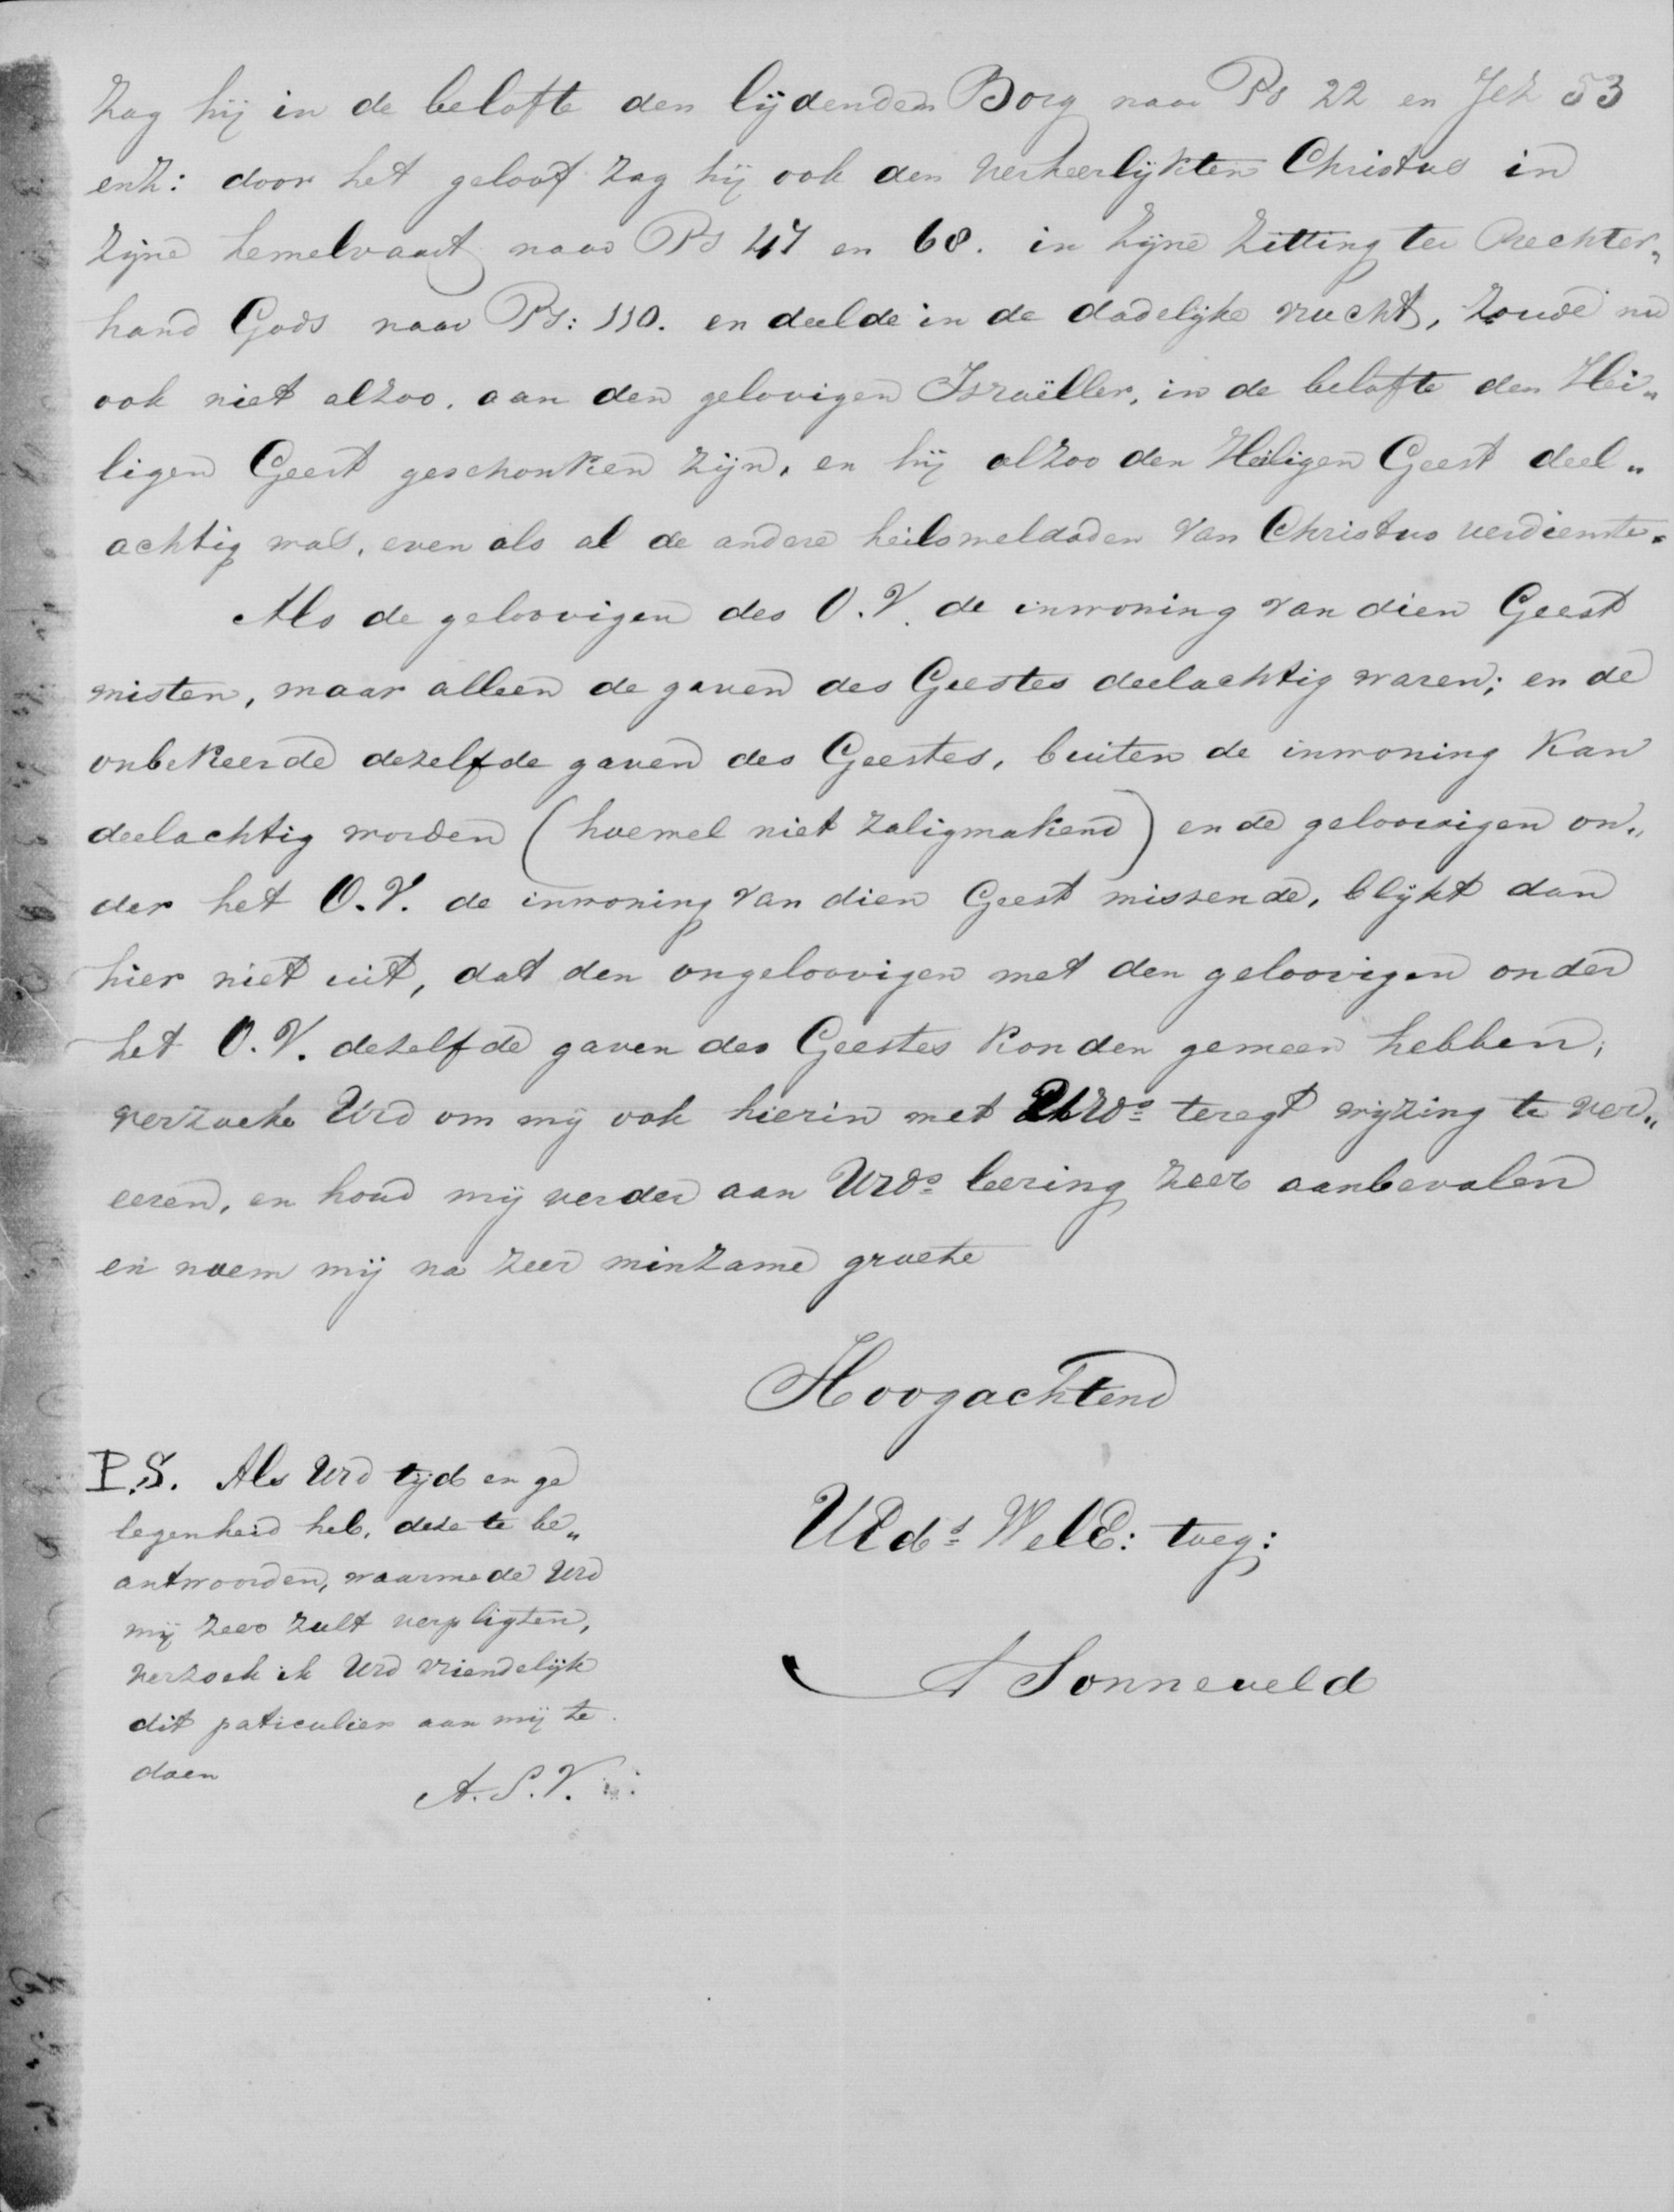 zag hij in de belofte den lijdenden Borg naar Ps 22 en Jez 53
enz: door het geloof zag hij ook den verheerlijkten Christus in
zijne hemelvaart naar Ps 47 en 68. in zijne zitting ter Rechter„
hand Gods naar Ps: 110. en deelde in de dadelijke vrucht, zoude nu
ook niet alzoo. aan den gelovigen Israëller, in de belofte den Hei„
ligen Geest geschonken zijn, en hij alzoo den Heiligen Geest deel„
achtig was, even als al de andere heilsweldaden van Christus verdienste.
Als de geloovigen des O.V. de inwoning van dien Geest
misten, maar alleen de gaven des Geestes deelachtig waren; en de
onbekeerde dezelfde gaven des Geestes, buiten de inwoning kan
deelachtig worden (hoewel niet zaligmakend) en de geloovigen on„
der het O.V. de inwoning van dien Geest missende, blijkt dan
hier niet uit, dat den ongeloovigen met den geloovigen onder
het O.V. dezelfde gaven des Geestes konden gemeen hebben,
verzoeke UEd om mij ook hierin met UEds teregt wijzing te ver„
eeren, en houd mij verder aan UEds leering zeer aanbevolen
en noem mij na zeer minzame groete
Hoogachtend
UEds WelE: toeg:
A Sonneveld
P.S. Als UEd tijd en ge
legenheid heb, deze te be„
antwoorden, waarmede UEd
mij zeer zult verpligten,
verzoek ik UEd vriendelijk
dit paticulier aan mij te
doen
A.S.V.